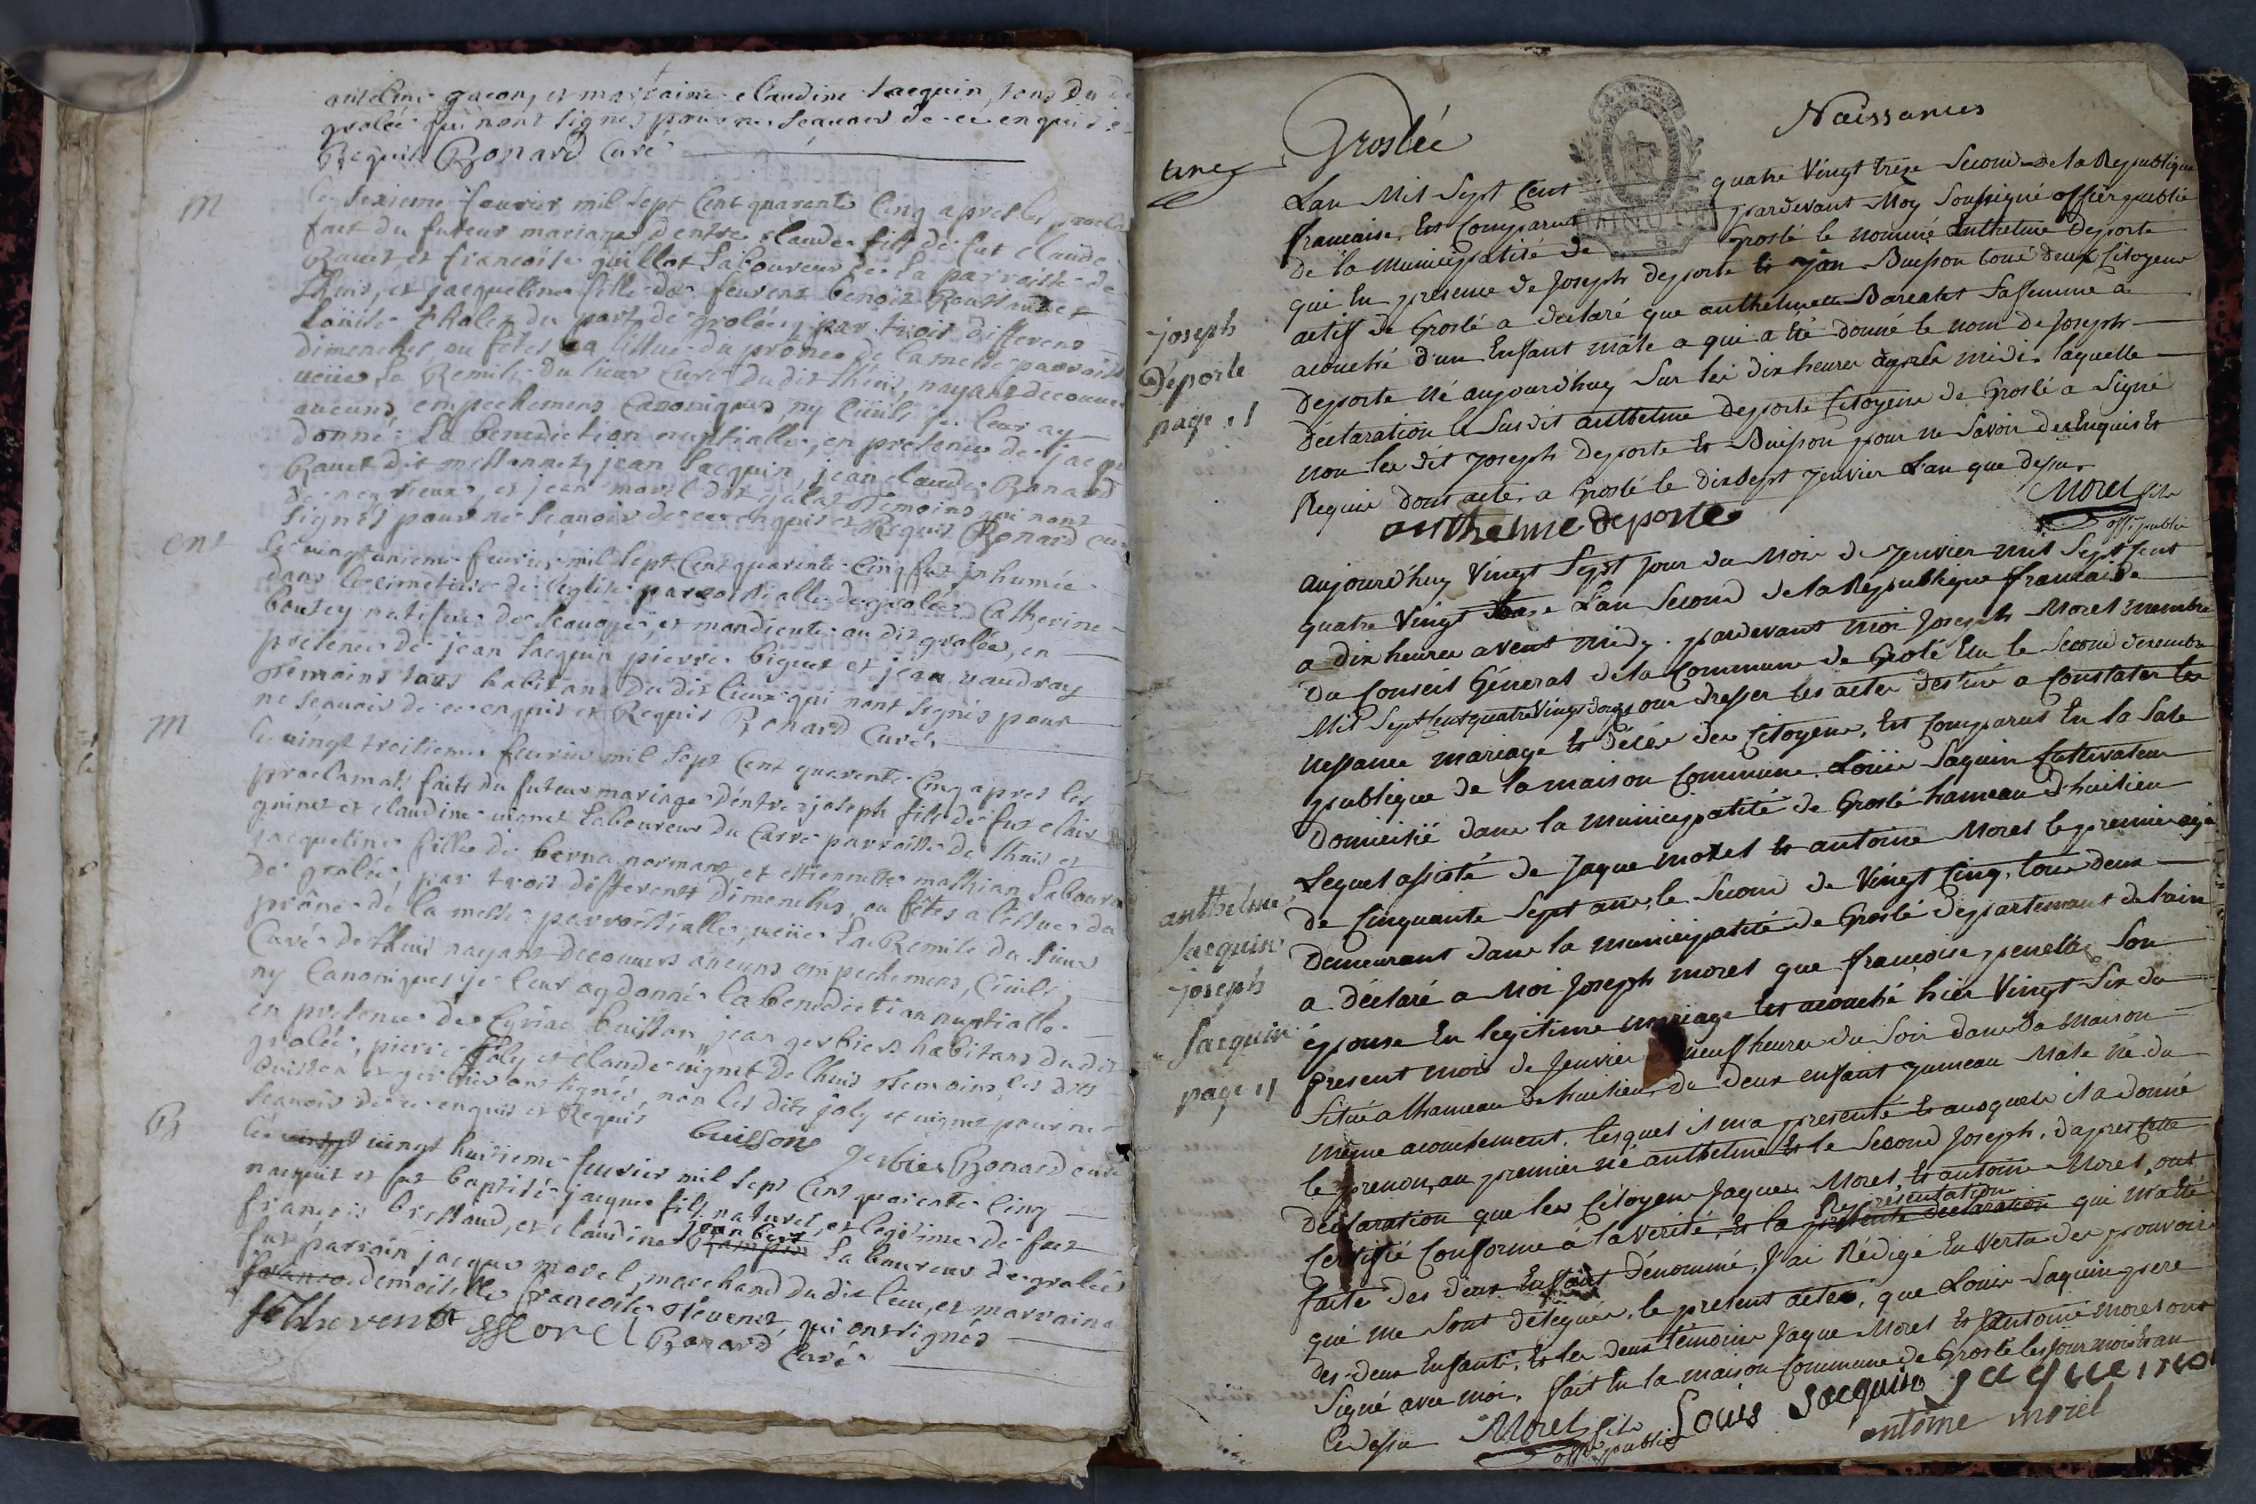 antelme gacon, et marraine claudine Jacquin, tous du
grolée qui nont signés pour ne scauoir de ce enquis et
Requis Bonard Curé
M
Le sezieme feurier mil sept Cent quarente Cinq apres les procla
fait du futeur mariage d'entre claude fils de fut claude
Bauet et francoise guillot Laboureur de La parroisse de
Lhuis, et jacqueline fille de feurent benoit Roussaud et
Loüise du port de grolée, par trois differens
dimenches ou fêtes a l'issue du prône de la messe parroiss
ueüe La Remise du sieur Curé du dit Lhuis, nayant decouuer
aucuns empechemens Canoniques ny Ciuils je leur ay
donné La benediction nuptialle, en presence de jacque
Bauet dit jean Jacquin, jean claude Bonard
et jean morel dit galas temoins qui nont
signés pour ne scauoir de ce enquis et Requis Bonard cu
ent
Le vingt unieme feurier mil sept Cent quarente Cinq fut inhumée
dans le cimetiere de l'eglise parroissialle de grolée Catherine
boutey natifue de Sauoye, et mandiente au dit grolée, en
presence de jean Jacquin pierre biguet et jean uaudray
temoins tous habitans du dit lieux qui nont signés pour
ne scauoir de ce enquis et Requis Bonard Curé
M
Le vingt treisieme feurier mil sept Cent quarente Cinq apres les
proclamat. faits du futeur mariage d'entre joseph fils de fut clair
guinet et claudine uionet Laboureur du Carre parroisse de Lhuis et
jacqueline fille de berna normand, et etiennette mathian Laboureur
de grolée, par trois differents dimenches, ou fêtes a l'issue du
prône de la messe parroissialle, ueüe La Remise du sieur
Curé de Lhuis nayant decouuers aucuns empechemens, Ciuils,
ny Canoniques je leur ay donné la benediction nuptialle
en presence de Cyriac buisson jean gerbier habitans du dit
grolée, pierre joly et claude uignet de Lhuis temoins, les dits
buisson et gerbier ont signés, non les dits joly et uignet pour ne
scauoir de ce enquis et Requis buisson gerbier Bonard curé
B
Le vingt uingt huitieme feurier mil sept Cent quarente Cinq
naquit et fut baptisé jacques fils naturel, et legitime de fut
francois brissaud, et claudine Laboureur de grolée
fut parrain jacques morel, marchand du dit lieu, et marraine
demoiselle francoise teuenet, qui ont signés
f thevenet morel Bonard Curé
Groslée
Naissances
une
Lan Mil Sept Cent quatre Vingt treze Second de la Republique
francaise, Est Comparut pardevant Moy Soussigné officier public
de la Municipalité de Groslé le nommé Anthelme Deporte
qui En presence de Joseph deporte Et Jean Buisson tous deux Citoyens
actif de Groslé a declaré que anthelmette Barcatet Safemme a
acouché d'un Enfant male a qui a été donné le nom de Joseph
Deporte né aujourd'huy Sur les dix heures apres midi laquelle
Déclaration le Susdit anthelme deporte Citoyen de Groslé a Signé
non les dit Joseph Deporte Et Buisson pour ne Savoir deEnquis Et
Requis dont acte a Groslé le dixsept Jenvier Lan que dessus
anthelme deporte
Morel fils
off. public
joseph
Deporte
page 11
aujourd'huy Vingt Sept jour du Mois de Jenvier mil Sept Cent
quatre Vingt treze Lan Second de la Republique francaise
a dix heures avent midy. pardevant moi Joseph Morel membre
du Conseil Géneral de la Commune de Groslé Elu le Second decembre
Mil Sept Cent quatre Vingt douze pour dresser les actes destiné a Constater les
nessance mariage Et décés des Citoyens, Est Comparut En la Sale
publique de la maison Commune. Louis Saquin Cultivateur
Domicilié dans la municipalité de Groslé hameau d'huilieu
Lequel assisté de Jaque morel Et antoine Morel le premier agé
de Cinquante Sept ans, le Second de Vingt Cinq, tous deux
Demeurant dans la municipalité de Groslé Departement de Lain
a déclaré a Moi Joseph morel que francoise Son
épouse En legitime mariage Est acouché hier Vingt Six du
present mois de Jenvier neuf heures du Soir dans Sa Maison
Situé alhameau dehuilieu, de deux enfant jumeau Male né du
même acouchement, lesquel il ma presenté Et auxquels il a donné
le prenon, au premier né anthelme Et le Second Joseph, d'apres Cette
Declaration que les Citoyens Jaques Morel, Et antoine Morel, ont
Certifié Conforme a la Verité, Et la presente déclaration Representation qui m'a été
faite des deux Enfant Dénommé, J'ai Rédigé En Vertu des pouvoirs
qui me Sont délegués, le present acte, que Louis Saquin pere
des deux Enfants, Et les deux témoins Jaque Morel Et Antoine Morel ont
Signé avec moi. fait En la maison Commune de Groslé les jour mois Et an
Cidessus Morel fils off. public Louis Jacquin jaque morel
antoine morel
anthelme
Jacquin
joseph
Jacquin
page 11